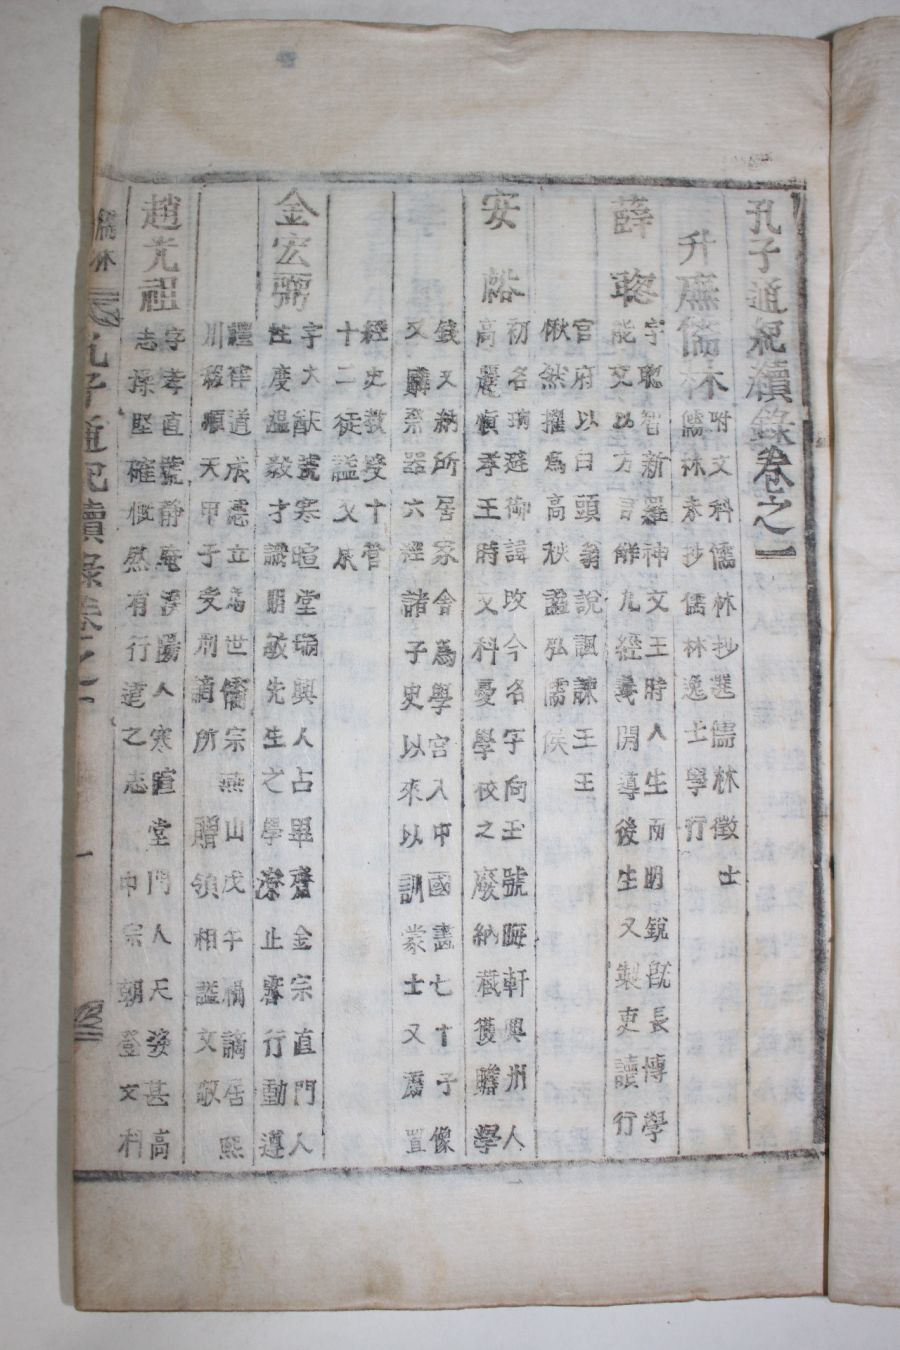 孔子通紀續錄卷之一
升廡儒林
附文科儒林抄選儒林徵士
儒林未抄儒林逸士學行
薛聰
字聰智新羅神文王時人生而明銳旣長博學
能文以方言解九經義開導後生又製吏讀行
官府以白頭翁說諷諫王王
愀然擢爲高秩謚弘儒侯
安裕
初名珦避御諱改今名字向王號晦軒興州人
高麗愼孝王時文科憂學校之廢納臧獲贍學
錢又納所居家舍爲學宮入中國畵七十子像
又購祭器六經諸子史以來以訓蒙士又薦置
經史敎授十管
十二徒謚文成
金宏弼
字大猷號寒暄堂瑞興人占畢齋金宗直門人
性度溫毅才識明敏先生之學深止齊行動遵
禮律道成德立爲世儒宗燕山戊午禍謫居熙
川移順天甲子受刑謫所贈領相謚文敬
趙光祖
字孝直號靜庵漢陽人寒暄堂門人天姿甚高
志操堅確慨然有行道之志中宗朝登文科
孔子通紀續錄卷之一
一